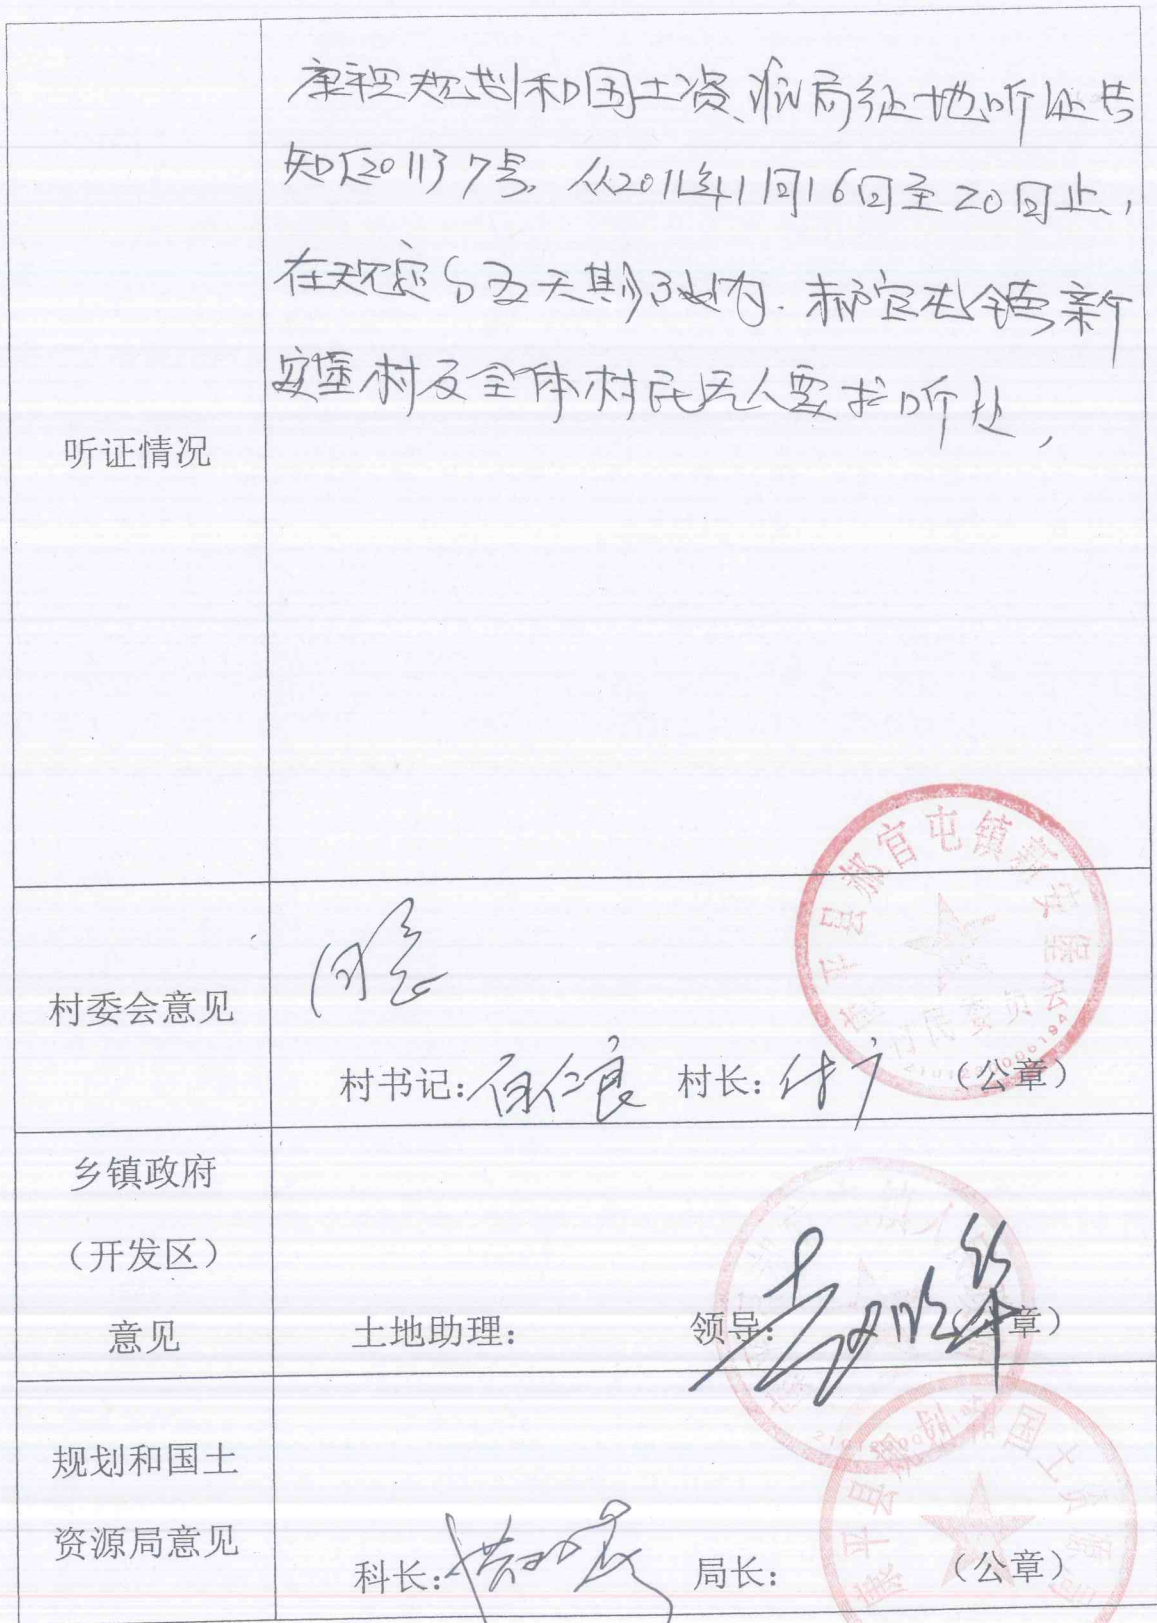 康规规划和国土资源局征地听证告
知〔2011〕7号。从2011年11月16日至20日止,
在规定的五天期间内。郝官屯镇新
安堡村及全体村民无人要求听证,
听证情况
村委会意见
同意
村书记: 村长: 付广 (公章)
康平县郝官屯镇新安堡村民委员会
乡镇政府
(开发区)
意见
土地助理: 领导: (公章)
规划和国土
资源局意见
科长: 局长: (公章)
康平县规划和国土资源局